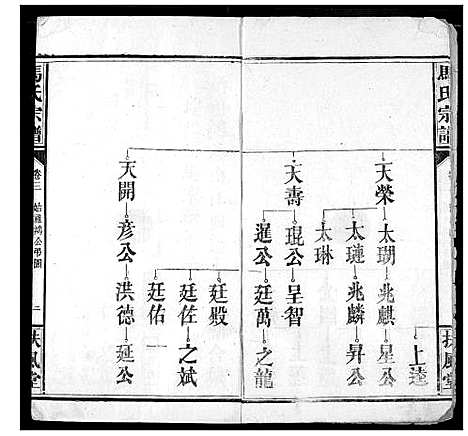 馬氏宗譜
扶風堂
上達
天榮 太瑚 兆麒 星公
太璉 兆麟 昇公
太琳
天壽 琨公 呈智
暹公 廷萬 之龍
廷殿
廷佐 之斌
廷佑
天開 彦公 洪德 延公
馬氏宗譜
卷三
始祖鴻公弔圖
二
扶風堂